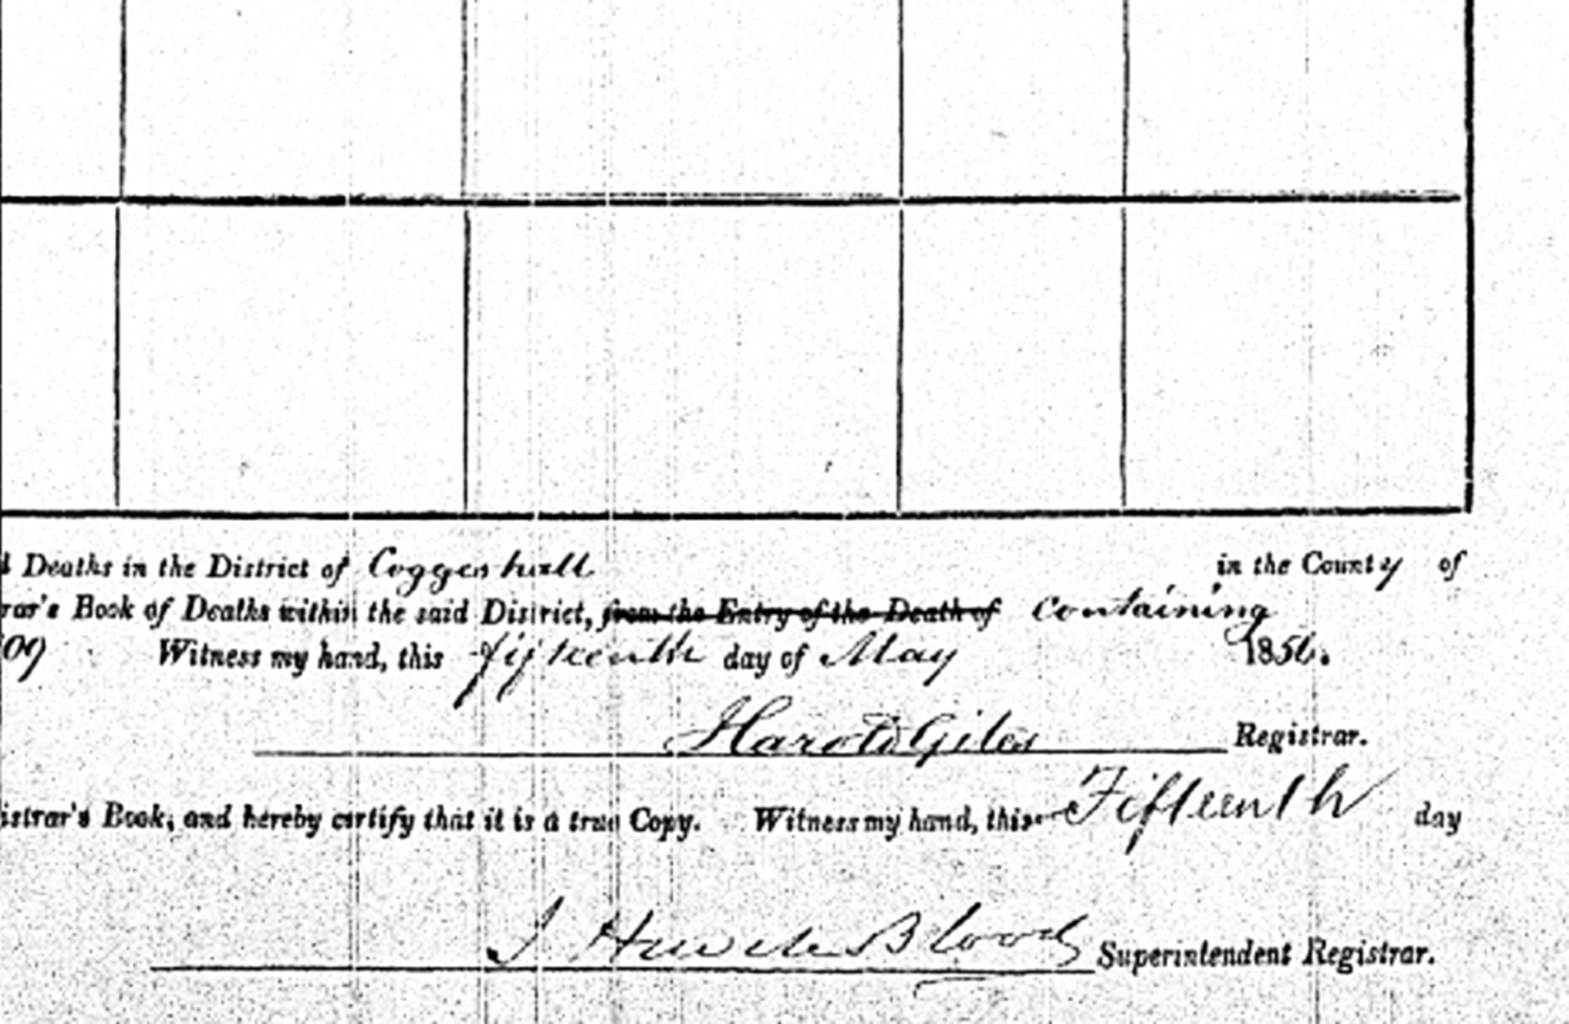 Deaths in the District of Coggeshall in the County of
rar's Book of Deaths within the said District, from the Entry of the Death of containing
Witness my hand, this fifteenth day of May 1856.
Harold Giles Registrar.
istrar's Book, and hereby certify that it is a true Copy. Witness my hand, this Fifteenth day
Blood Superintendent Registrar.